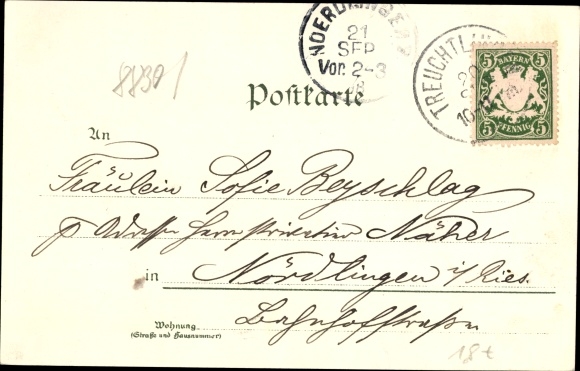 NOERDLINGEN
21
SEP
Vor. 2-3
TREUCHTL
20
10-11
5 BAYERN 5
5 PFENNIG 5
88301
Postkarte
An
Fräulein Sofie Beyschlag
p Adresse Herrn Privatier Näher
in Nördlingen i/Ries.
Wohnung
(Straße und Hausnummer)
Bahnhofstraße
18t